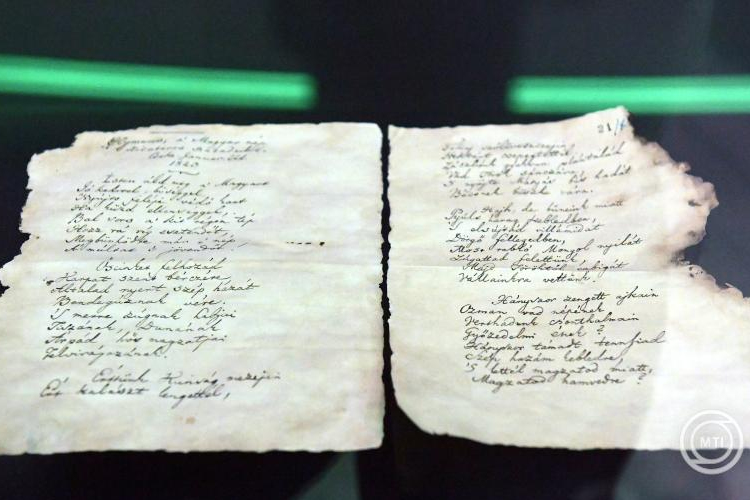 Hymnus, a' Magyar nép
zivataros századaiból.
1823
Isten áldd meg a' Magyart
Jó kedvvel, bőséggel,
Nyújts feléje védő kart,
Ha küzd ellenséggel;
Bal sors a' kit régen tép,
Hozz rá víg esztendőt,
Megbűnhődte már e' nép
A' multat 's jövendőt!
Őseinket felhozád
Kárpát szent bérczére,
Általad nyert szép hazát
Bendegúznak vére.
'S merre zúgnak habjai
Tiszának, Dunának,
Árpád hős magzatjai
Felvirágozának.
Értünk Kunság mezejin
Ért kalászt lengettél,
21
Tokaj szőlővesszejin
Nektárt csepegtettél.
Zászlónk gyakran plántálád
Vad török sánczára,
'S nyögte Mátyás bús hadát
Bécsnek büszke vára.
Hajh, de bűneink miatt
Gyúlt harag kebledben,
'S elsújtád villámidat
Dörgő fellegedben,
Most rabló Mongol nyilát
Zúgattad felettünk,
Majd töröktől rabigát
Vállainkra vettünk.
Hányszor zengett ajkain
Ozman vad népének
Vert hadunk csonthalmain
Győzedelmi ének?
Hányszor támadt tennfiad
Szép hazám kebledre,
'S lettél magzatod miatt,
Magzatod hamvedre?
MTI